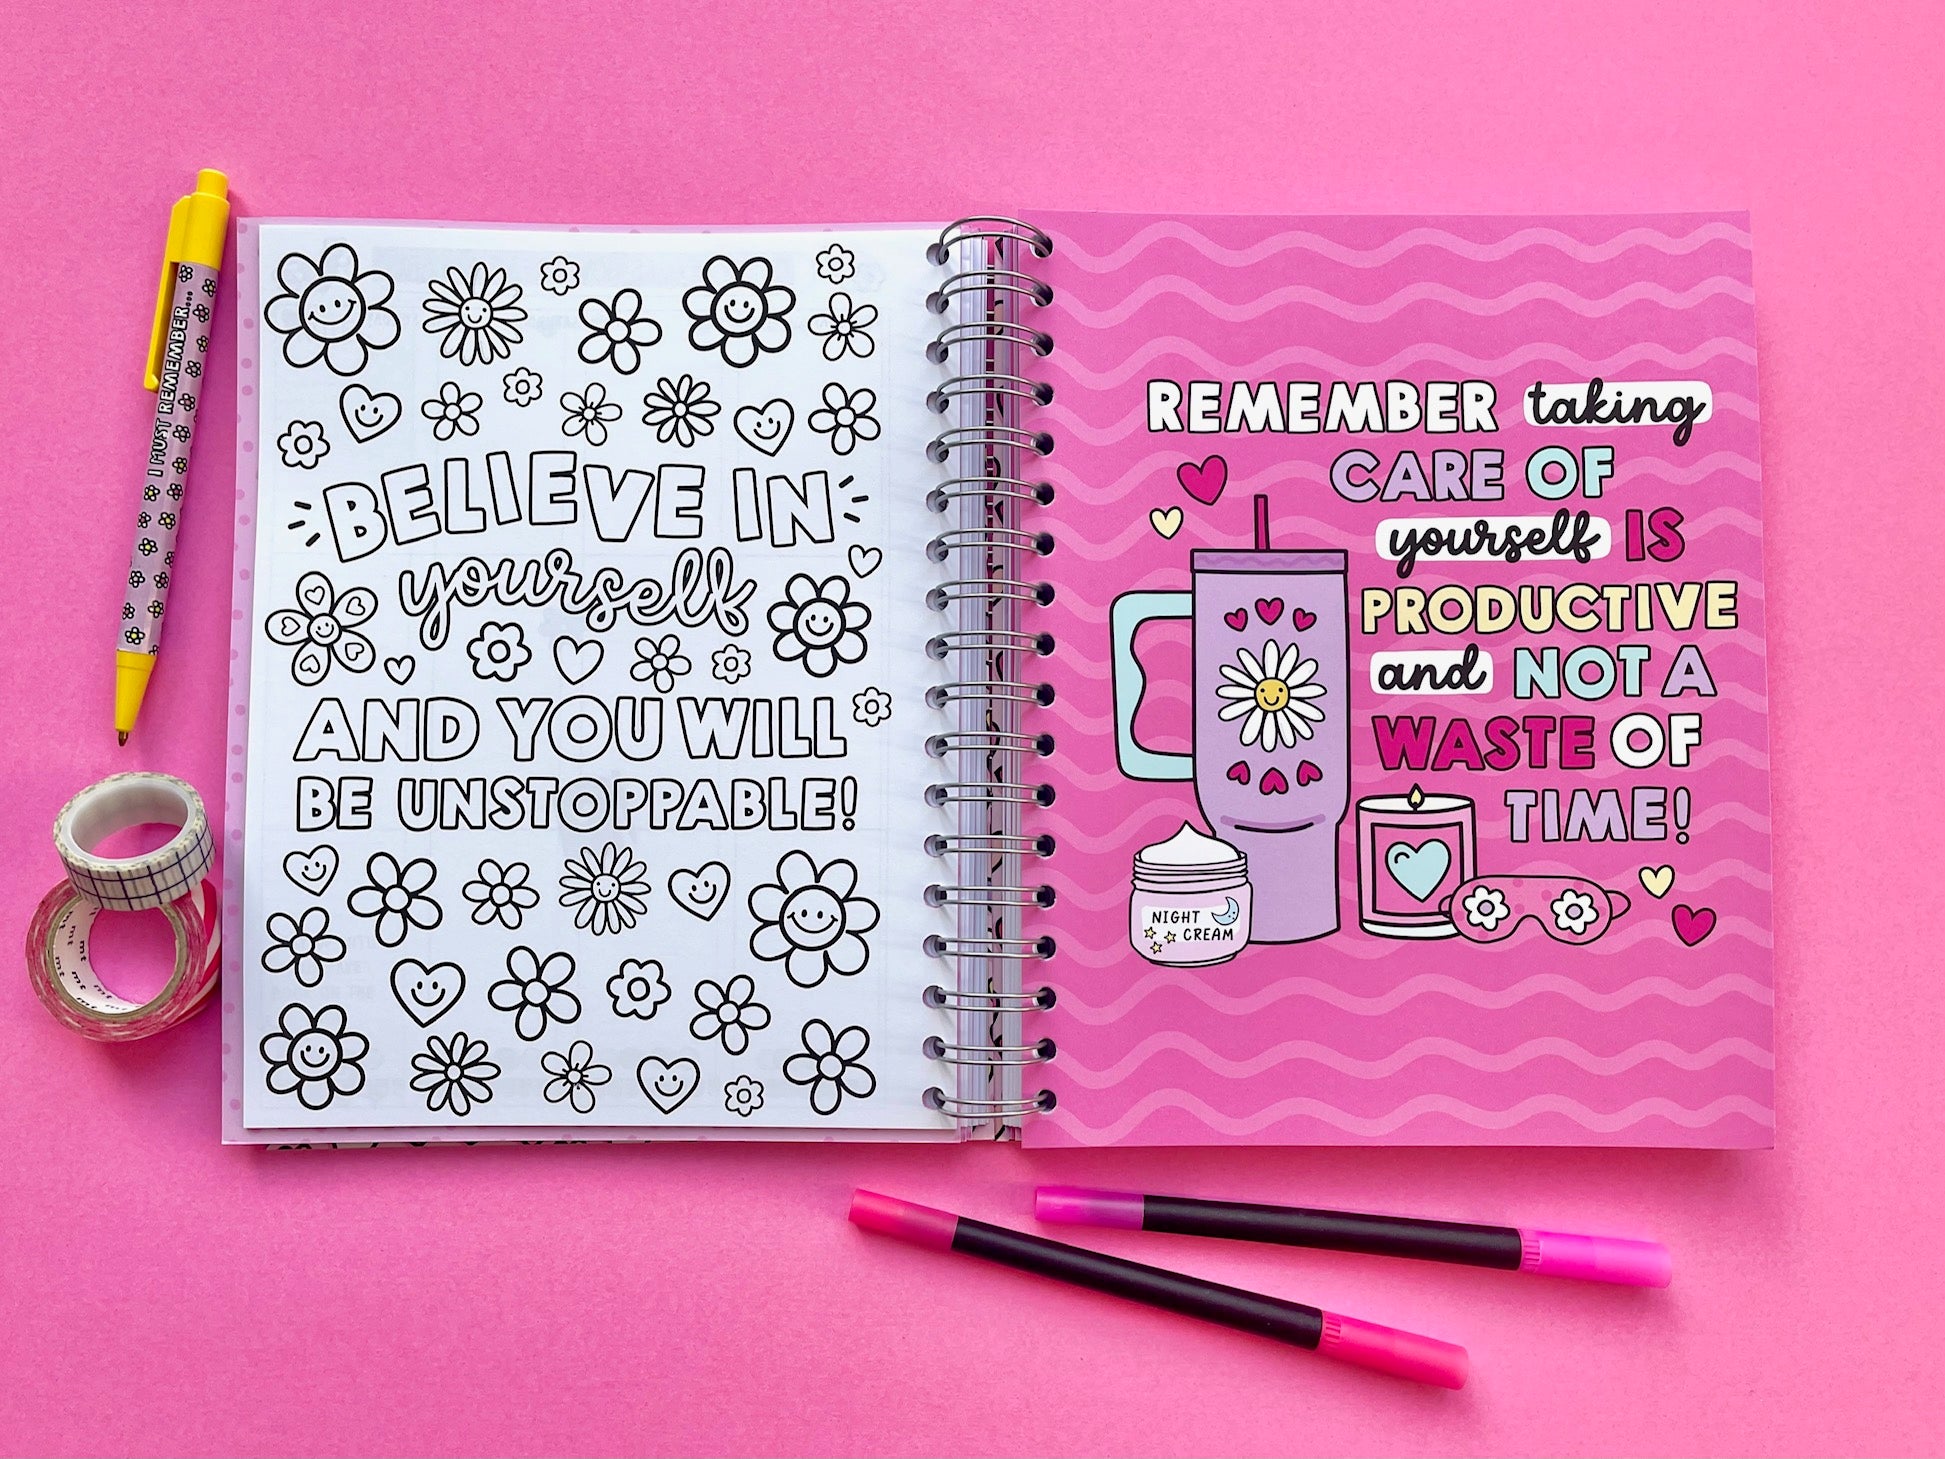 I MUST REMEMBER...
BELIEVE IN
yourself
AND YOU WILL
BE UNSTOPPABLE!
REMEMBER taking
CARE OF
yourself IS
PRODUCTIVE
and NOT A
WASTE OF
TIME!
NIGHT
CREAM
mt mt mt mt